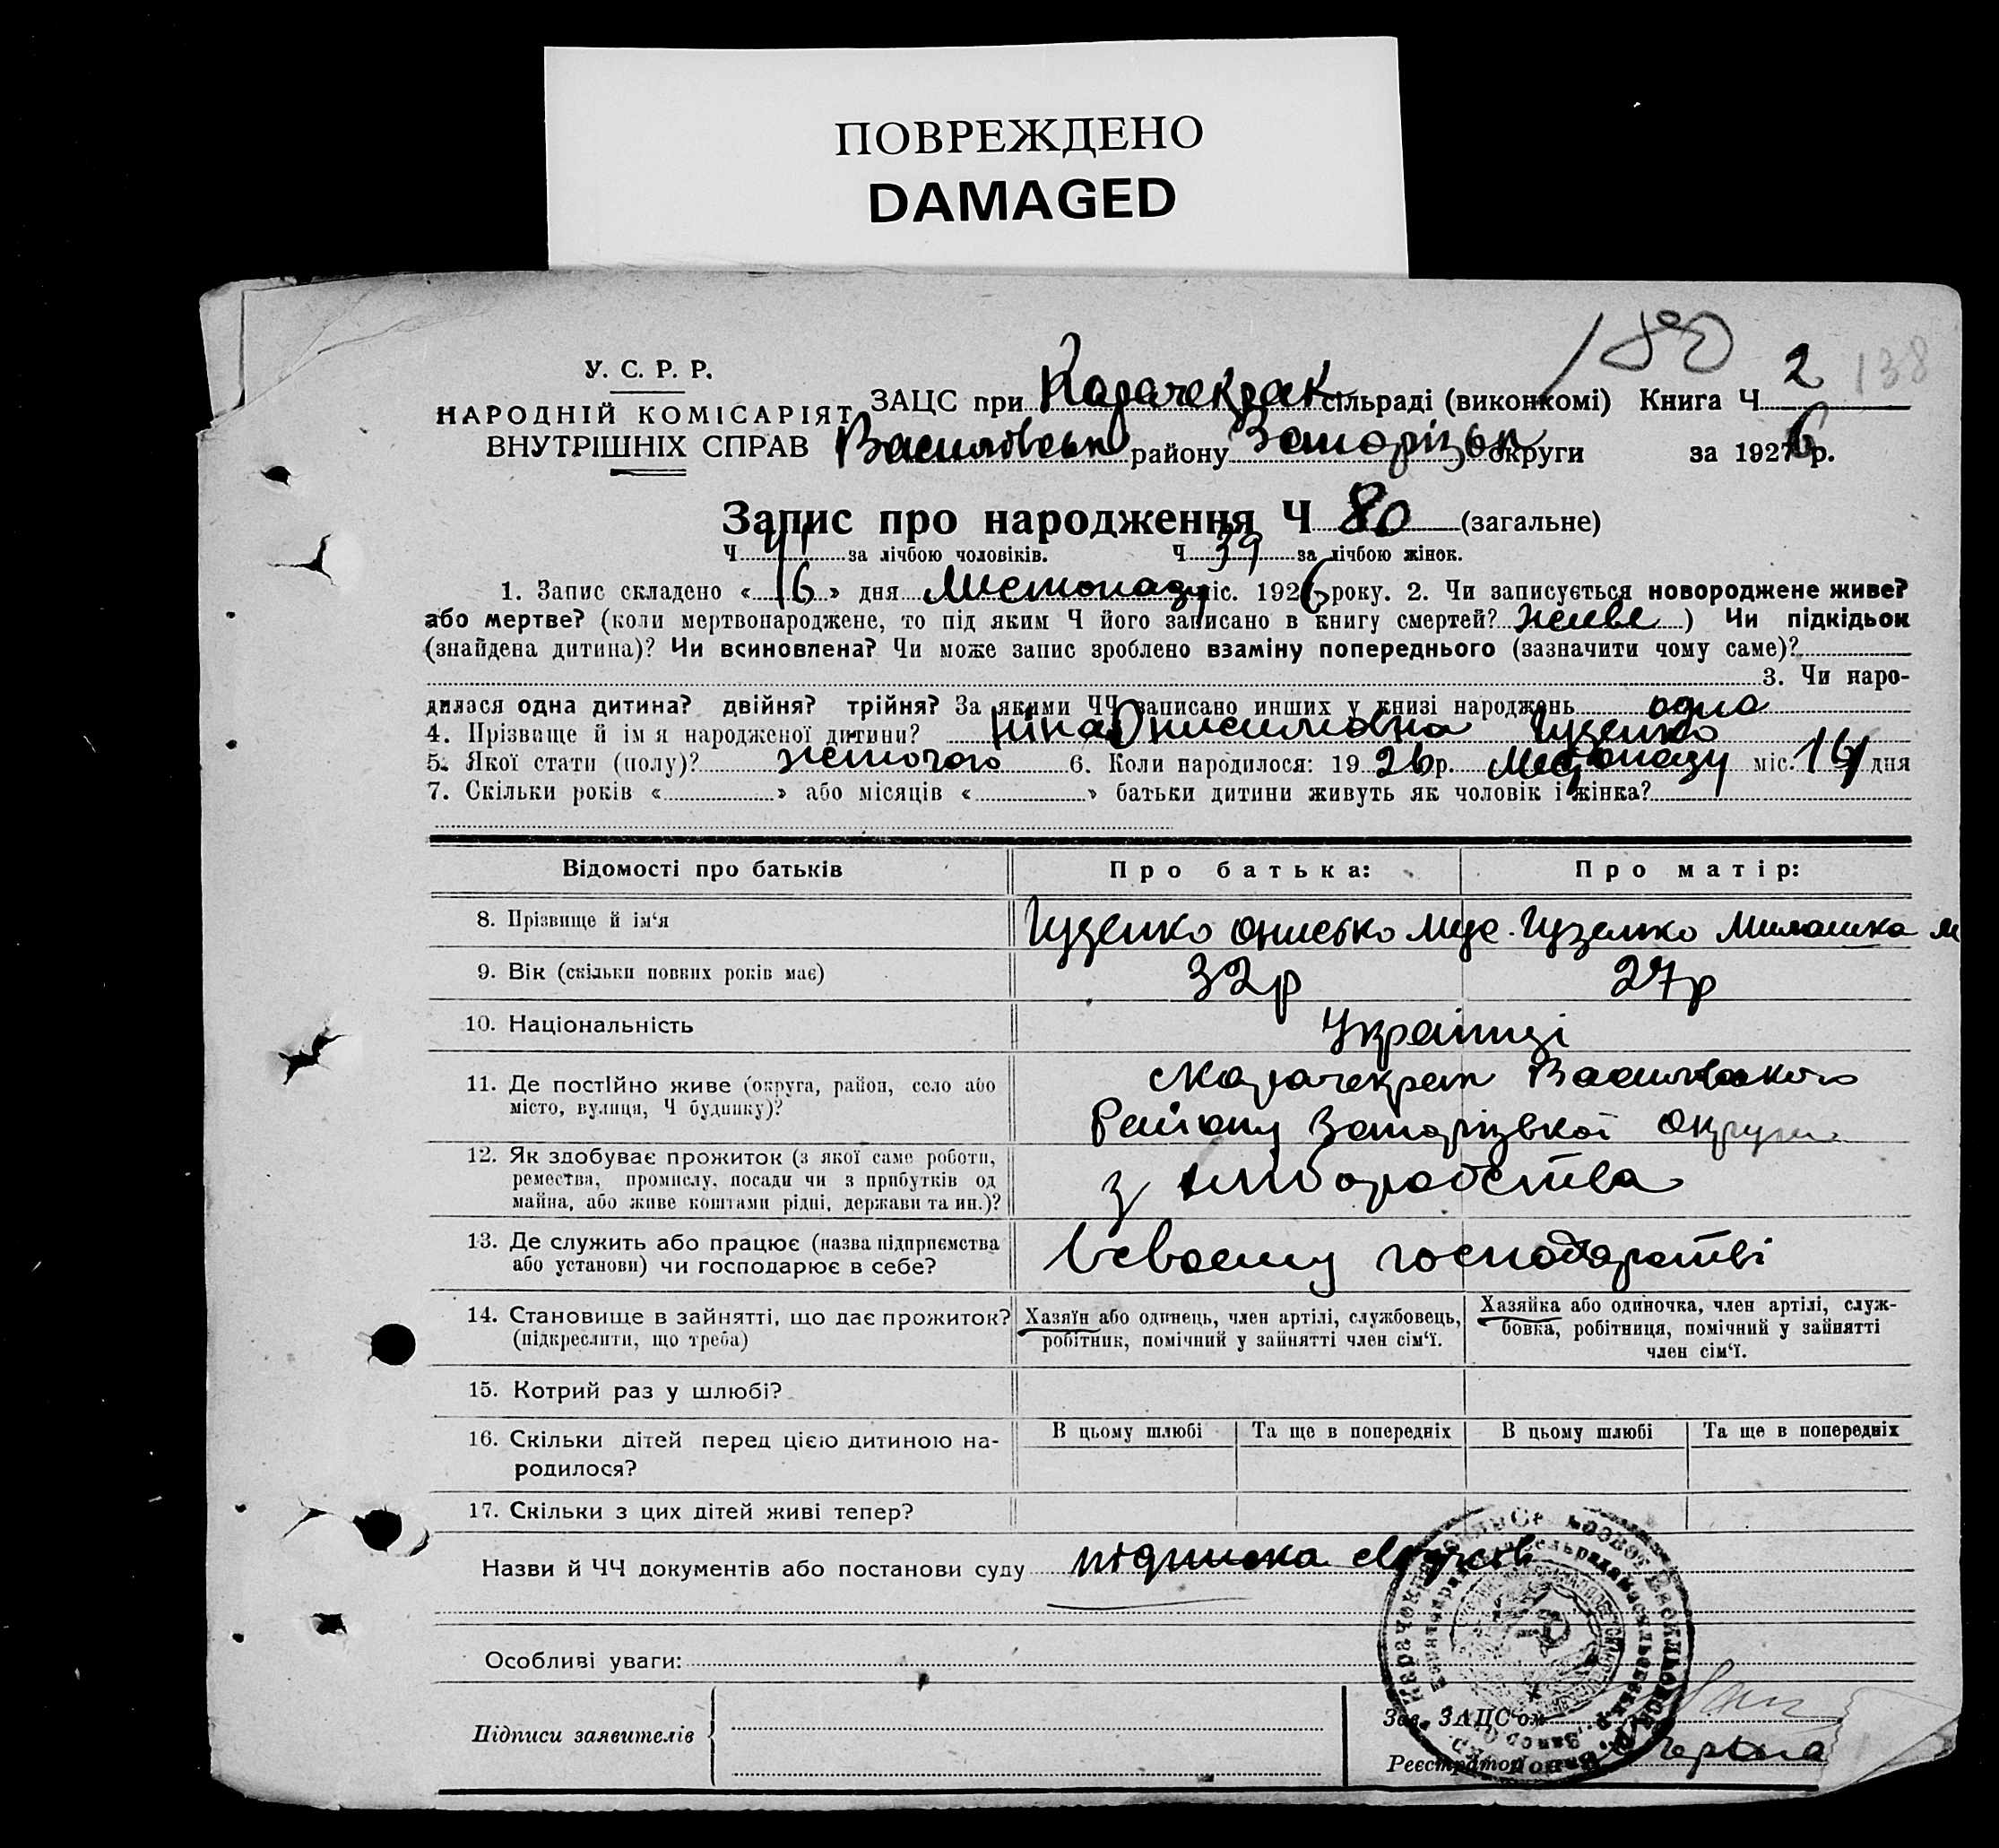 ПОВРЕЖДЕНО
DAMAGED
180
138
У. С. Р. Р.
НАРОДНІЙ КОМІСАРІЯТ
ВНУТРІШНІХ СПРАВ
ЗАЦС при Карачекрак сільраді (виконкомі) Книга Ч 2
Василівськ району Запорізьк округи за 1926 р.
Запис про народження Ч 80 (загальне)
Ч 41 за лічбою чоловіків. Ч 39 за лічбою жінок.
1. Запис складено « 16 » дня Листопаду міс. 1926 року. 2. Чи записується новороджене живе?
або мертве? (коли мертвонароджене, то під яким Ч його записано в книгу смертей? живе ) Чи підкідьок
(знайдена дитина)? Чи всиновлена? Чи може запис зроблено взаміну попереднього (зазначити чому саме)?
3. Чи наро-
дилася одна дитина? двійня? трійня? За якими ЧЧ записано инших у книзі народжень одна
4. Прізвище й ім я народженої дитини? Ніна Онисимовна Гузенко
5. Якої стати (полу)? жіночого 6. Коли народилося: 19 26 р. Листопаду міс. дня
7. Скільки років « » або місяців « » батьки дитини живуть як чоловік і жінка?
Відомості про батьків Про батька: Про матір:
8. Прізвище й ім'я Гузенко Онисько Гузенко М
9. Вік (скільки повних років має) 32р 27р
10. Національність Українці
11. Де постійно живе (округа, район, село або Карачекрак Василівського
місто, вулиця, Ч будинку)? Району Запорізької Округи
12. Як здобуває прожиток (з якої саме роботи,
ремества, промислу, посади чи з прибутків од з хліборобства
майна, або живе коштами рідні, держави та ин.)?
13. Де служить або працює (назва підприємства
або установи) чи господарює в себе? В своєму господарстві
14. Становище в зайнятті, що дає прожиток? Хазяїн або одинець, член артілі, службовець, Хазяйка або одиночка, член артілі, служ-
(підкреслити, що треба) робітник, помічний у зайнятті член сім'ї. бовка, робітниця, помічний у зайнятті
член сім'ї.
15. Котрий раз у шлюбі?
16. Скільки дітей перед цією дитиною на- В цьому шлюбі Та ще в попередніх В цьому шлюбі Та ще в попередніх
родилося?
17. Скільки з цих дітей живі тепер?
Назви й ЧЧ документів або постанови суду підписка
Особливі уваги:
Підписи заявителів
Зав. ЗАЦС'ом
Реєстратор